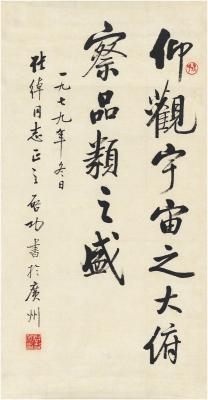 仰觀宇宙之大俯
察品類之盛
一九七九年冬日
杜綽同志正之啓功書於廣州